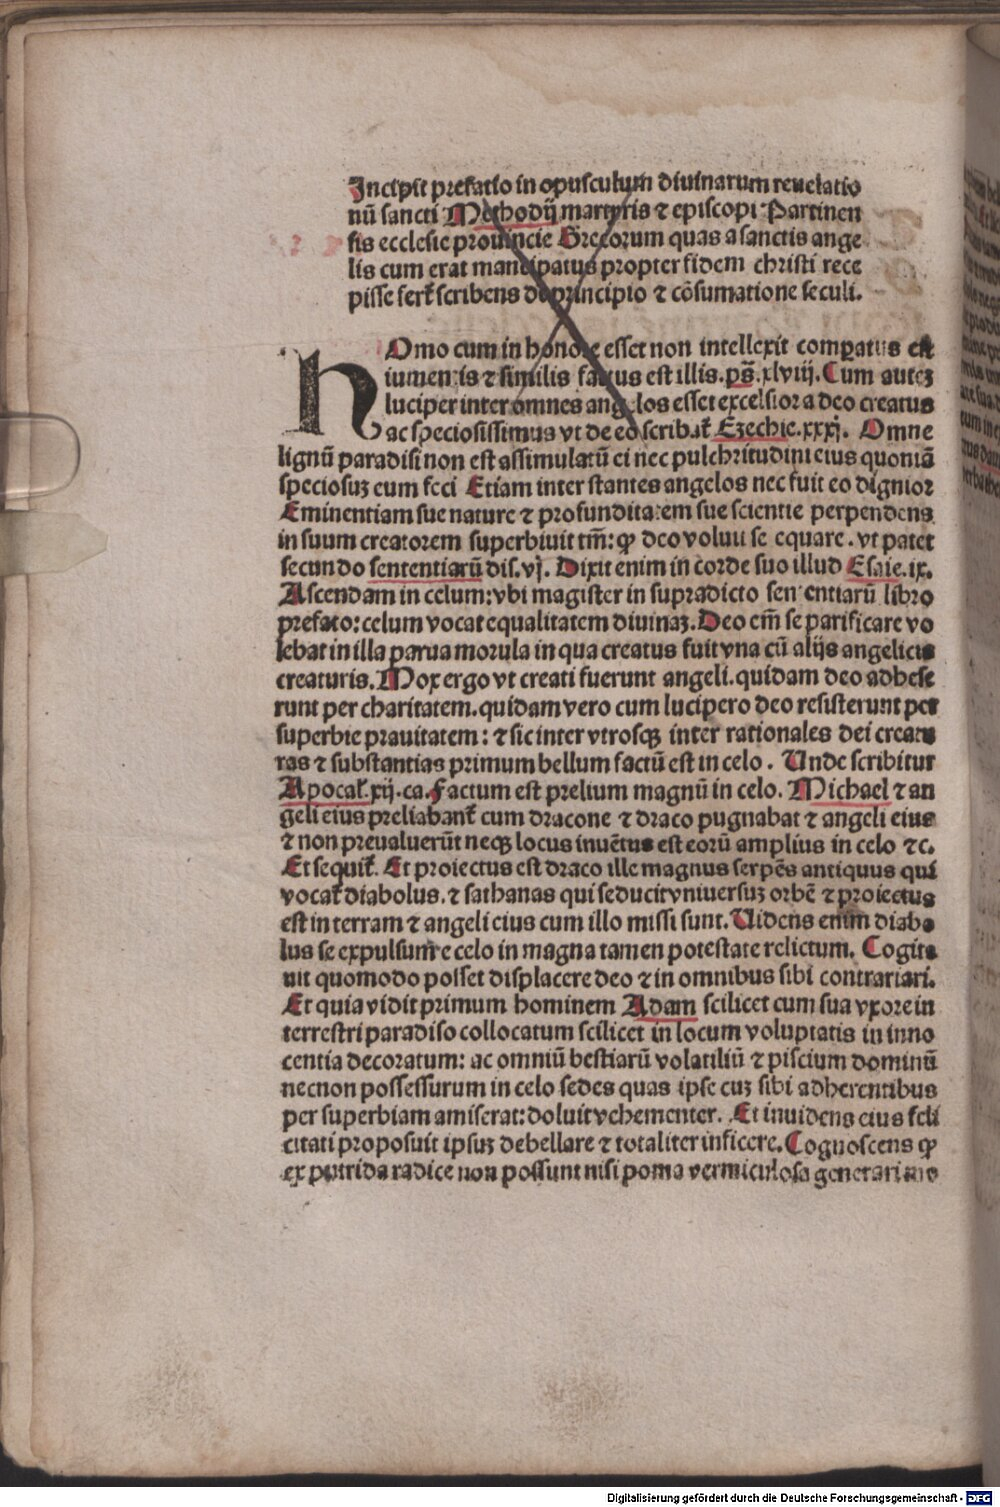 Incipit prefatio in opusculum diuinarum reuelatio
nū sancti Methodij martyris ⁊ episcopi Partinen
sis ecclesie prouincie Grecorum quas a sanctis ange
lis cum erat mancipatus propter fidem christi rece
pisse fert᷑ scribens de principio ⁊ cōsumatione seculi.
HOmo cum in honore esset non intellexit comparatus est
iumentis ⁊ similis factus est illis. ps̄. xlviij. Cum autez
luciper inter omnes angelos esset excelsior a deo creatus
ac speciosissimus vt de eo scribat᷑ Ezechie. xxxj. Omne
lignū paradisi non est assimulatū ei nec pulchritudini eius quoniā
speciosuz eum feci Etiam inter stantes angelos nec fuit eo dignior
Eminentiam sue nature ⁊ profunditatem sue scientie perpendens
in suum creatorem superbiuit tm̄: ꝙ deo voluit se equare. vt patet
secundo sententiarū dis. vj. Dixit enim in corde suo illud Esaie. ix.
Ascendam in celum: vbi magister in supradicto sententiarū libro
prefato: celum vocat equalitatem diuinaz. Deo em̄ se parificare vo
lebat in illa parua morula in qua creatus fuit vna cū alijs angelicis
creaturis. Mox ergo vt creati fuerunt angeli. quidam deo adhese
runt per charitatem. quidam vero cum lucipero deo resisterunt per
superbie prauitatem: ⁊ sic inter vtrosqꝫ inter rationales dei creatu
ras ⁊ substantias primum bellum factū est in celo. Unde scribitur
Apocal᷑. xij. ca. Factum est prelium magnū in celo. Michael ⁊ an
geli eius preliabant᷑ cum dracone ⁊ draco pugnabat ⁊ angeli eius
⁊ non preualuerūt neqꝫ locus inuētus est eorū amplius in celo ⁊c.
Et sequit᷑. Et proiectus est draco ille magnus serpēs antiquus qui
vocat᷑ diabolus. ⁊ sathanas qui seducit vniuersuz orbē ⁊ proiectus
est in terram ⁊ angeli eius cum illo missi sunt. Uidens enim diabo
lus se expulsum e celo in magna tamen potestate relictum. Cogita
uit quomodo posset displacere deo ⁊ in omnibus sibi contrariari.
Et quia vidit primum hominem Adam scilicet cum sua vxore in
terrestri paradiso collocatum scilicet in locum voluptatis in inno
centia decoratum: ac omniū bestiarū volatiliū ⁊ piscium dominū
necnon possessurum in celo sedes quas ipse cuz sibi adherentibus
per superbiam amiserat: doluit vehementer. Et inuidens eius feli
citati proposuit ipsuz debellare ⁊ totaliter inficere. Cognoscens ꝙ
ex putrida radice non possunt nisi poma vermiculosa generari
Digitalisierung gefördert durch die Deutsche Forschungsgemeinschaft - DFG